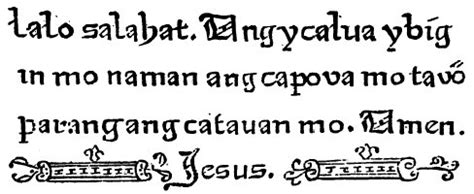 lalo salahat. Ang ycalua ybig
in mo naman ang capova mo tavõ
parang ang catauan mo. Amen.
Jesus.